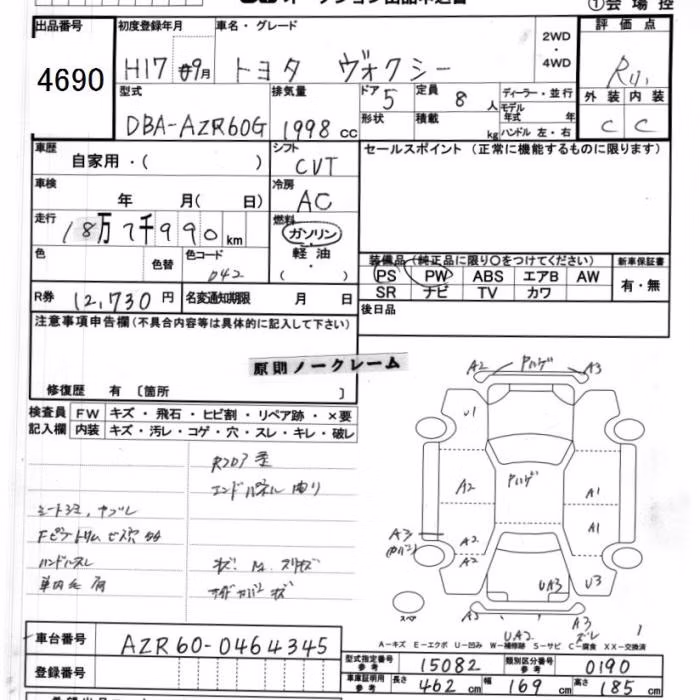 ①会場控
出品番号
4690
初度登録年月
H17年9月
車名・グレード
トヨタ ヴォクシー
2WD
・
4WD
評価点
外装 内装
C C
型式
DBA-AZR60G
排気量
1998 cc
ドア
5
定員
8 人
形状
積載
kg
ディーラー・並行
モデル
年式 年
ハンドル 左・右
車歴
自家用・( )
シフト
CVT
セールスポイント (正常に機能するものに限ります)
車検
年 月( 日)
冷房
AC
走行
18万7千990 km
燃料
ガソリン
・
軽油
・
( )
色
色替
色コード
042
装備品 (純正品に限り〇をつけてください)
PS PW ABS エアB AW
SR ナビ TV カワ
新車保証書
有・無
R券 12,730 円
名変通期限 月 日
後日品
注意事項申告欄(不具合内容等は具体的に記入して下さい)
原則ノークレーム
修復歴 有 〔箇所 〕
検査員
記入欄
FW キズ・飛石・ヒビ割・リペア跡・×要
内装 キズ・汚レ・コゲ・穴・スレ・キレ・破レ
シートシミ、ヤブレ
ハンドルスレ
A2 ハゲ A3
U1
A2
ハゲ
A1
A1
A3
A2
A2
UA3
U3
スペア
A3
UA2
A3
ズレ
1
A-キズ E-エクボ U-凹み W-補修跡 S-サビ C-腐食 XX-交換済
車台番号
AZR60-0464345
登録番号
型式指定番号
参考
15082
類別区分番号
参考
0190
車庫証明用
参考
長さ 462 cm 幅 169 cm 高さ 185 cm